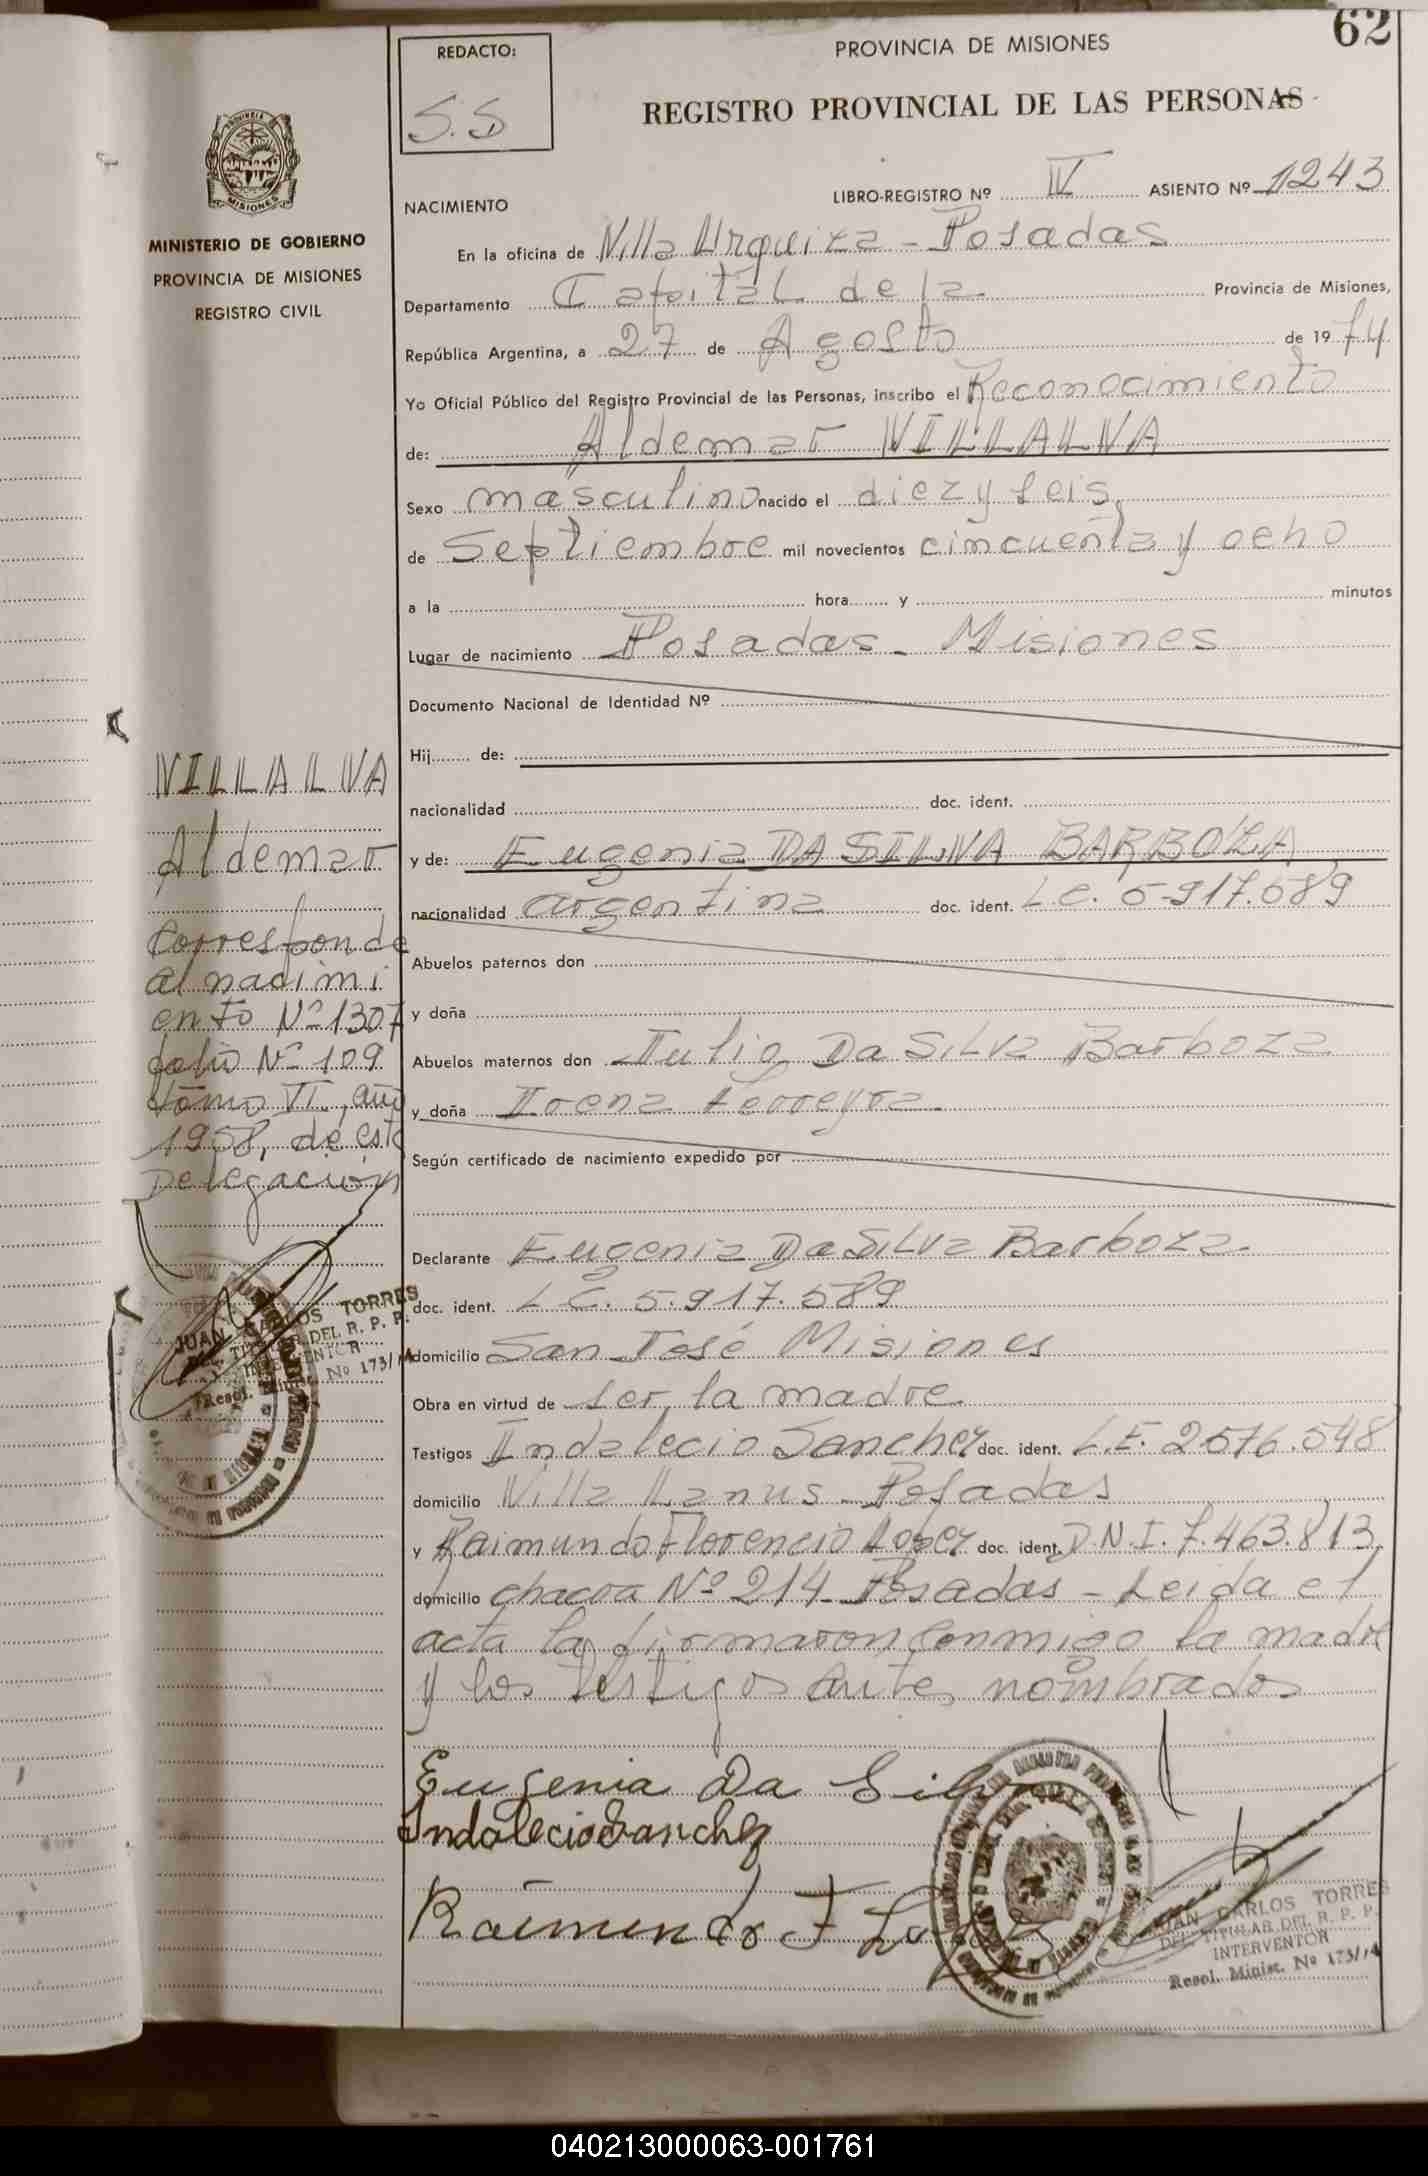 62
REDACTO:
S.S
PROVINCIA DE MISIONES
REGISTRO PROVINCIAL DE LAS PERSONAS
MISIONES
MINISTERIO DE GOBIERNO
PROVINCIA DE MISIONES
REGISTRO CIVIL
NACIMIENTO
LIBRO-REGISTRO Nº IV ASIENTO Nº 1243
En la oficina de Villa Urquiza - Posadas
Departamento Capital de la Provincia de Misiones,
República Argentina, a 27 de Agosto de 1974
Yo Oficial Público del Registro Provincial de las Personas, inscribo el Reconocimiento
de: Aldemar VILLALVA
Sexo masculino nacido el diez y seis
de Septiembre mil novecientos cincuenta y ocho
a la hora y minutos
Lugar de nacimiento Posadas - Misiones
Documento Nacional de Identidad Nº
Hij de:
nacionalidad doc. ident.
y de: Eugenia DA SILVA BARBOZA
nacionalidad argentina doc. ident. L.C. 5.917.589
Abuelos paternos don
y doña
Abuelos maternos don Julio Da Silva Barboza
y doña Irena Ferreyra
Según certificado de nacimiento expedido por
Declarante Eugenia Da Silva Barboza
doc. ident. L.C. 5.917.589
domicilio San José Misiones
Obra en virtud de ser la madre
Testigos Indalecio Sanchez doc. ident. L.E. 2576.548
domicilio Villa Lanus - Posadas
y Raimundo Florencio Lopez doc. ident. D.N.I. 7.463.813
domicilio chacra Nº 214 Posadas - Leida el
acta la firmaron conmigo la madre
y los testigos antes nombrados
VILLALVA
Aldemar
Corresponde
al nacimi
ento Nº 1307
folio Nº 109
tomo VI, año
1958, de esta
Delegación
JUAN CARLOS TORRES
DEL. TITULAR DEL R. P. P.
INTERVENTOR
Resol. Minist. Nº 173/74
Eugenia Da Silva
Indalecio Sanchez
Raimundo F Lopez
JUAN CARLOS TORRES
DEL. TITULAR DEL R. P. P.
INTERVENTOR
Resol. Minist. Nº 173/74
040213000063-001761